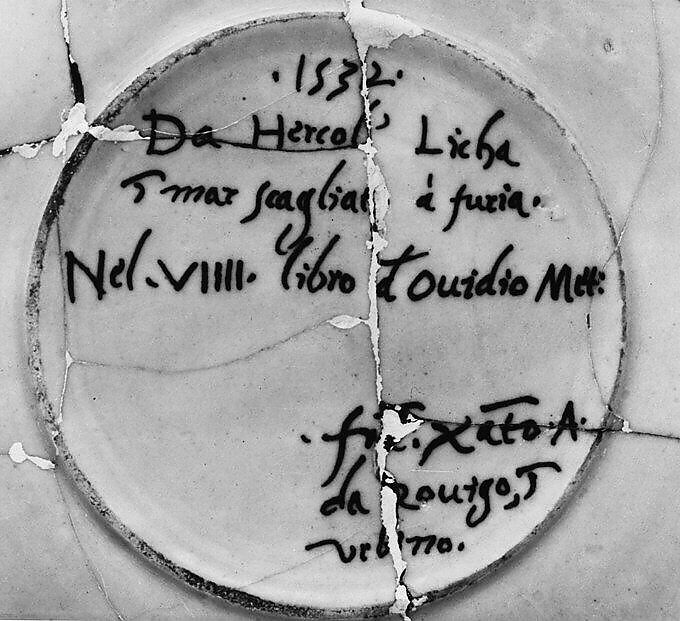 .1532.
Da Hercol' Licha
ī mar scagliat à furia.
Nel. VIIII. libro d' Ouidio Met:
. frā: Xāto. A.
da Rouigo, ī
vrbino.